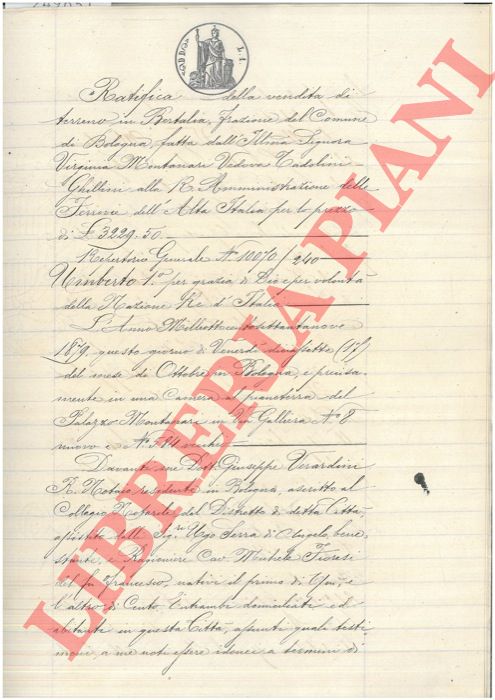 L. 1.
Ratifica della vendita di
terreno in Bertalia, frazione del Comune
di Bologna, fatta dall' Illma Signora
Virginia Montanari Vedova Tadolini-
Ghillini alla R. Amministrazione delle
Ferrovie dell' Alta Italia per lo prezzo
di £ 3229.50
Repertorio Generale N° 10070/240
Umberto 1.° per grazia di Dio e per volontà
della Nazione Re d' Italia
L' Anno Milleottocentosettantanove
1879, questo giorno di Venerdì diciasette (17)
del mese di Ottobre in Bologna, e precisa
mente in una Camera al pianterra del
Palazzo Montanari in V. Galliera N° 8
nuovo e N° 594 vecchio
Davanti me Dott. Giuseppe Verardini
R. Notaio residente in Bologna, ascritto al
Collegio Notarile del Distretto di detta Città,
assistito dalli Sig.ri Ugo Serra di Angelo, bene
stante, e Ragioniere Cav. Michele Fioresi
del fu Francesco, nativi il primo di qui, e
l' altro di Cento, entrambi domiciliati ed
abitanti in questa Città, assunti quali testi
moni, a me noti essere idonei a termini di
LIBRERIA PIANI